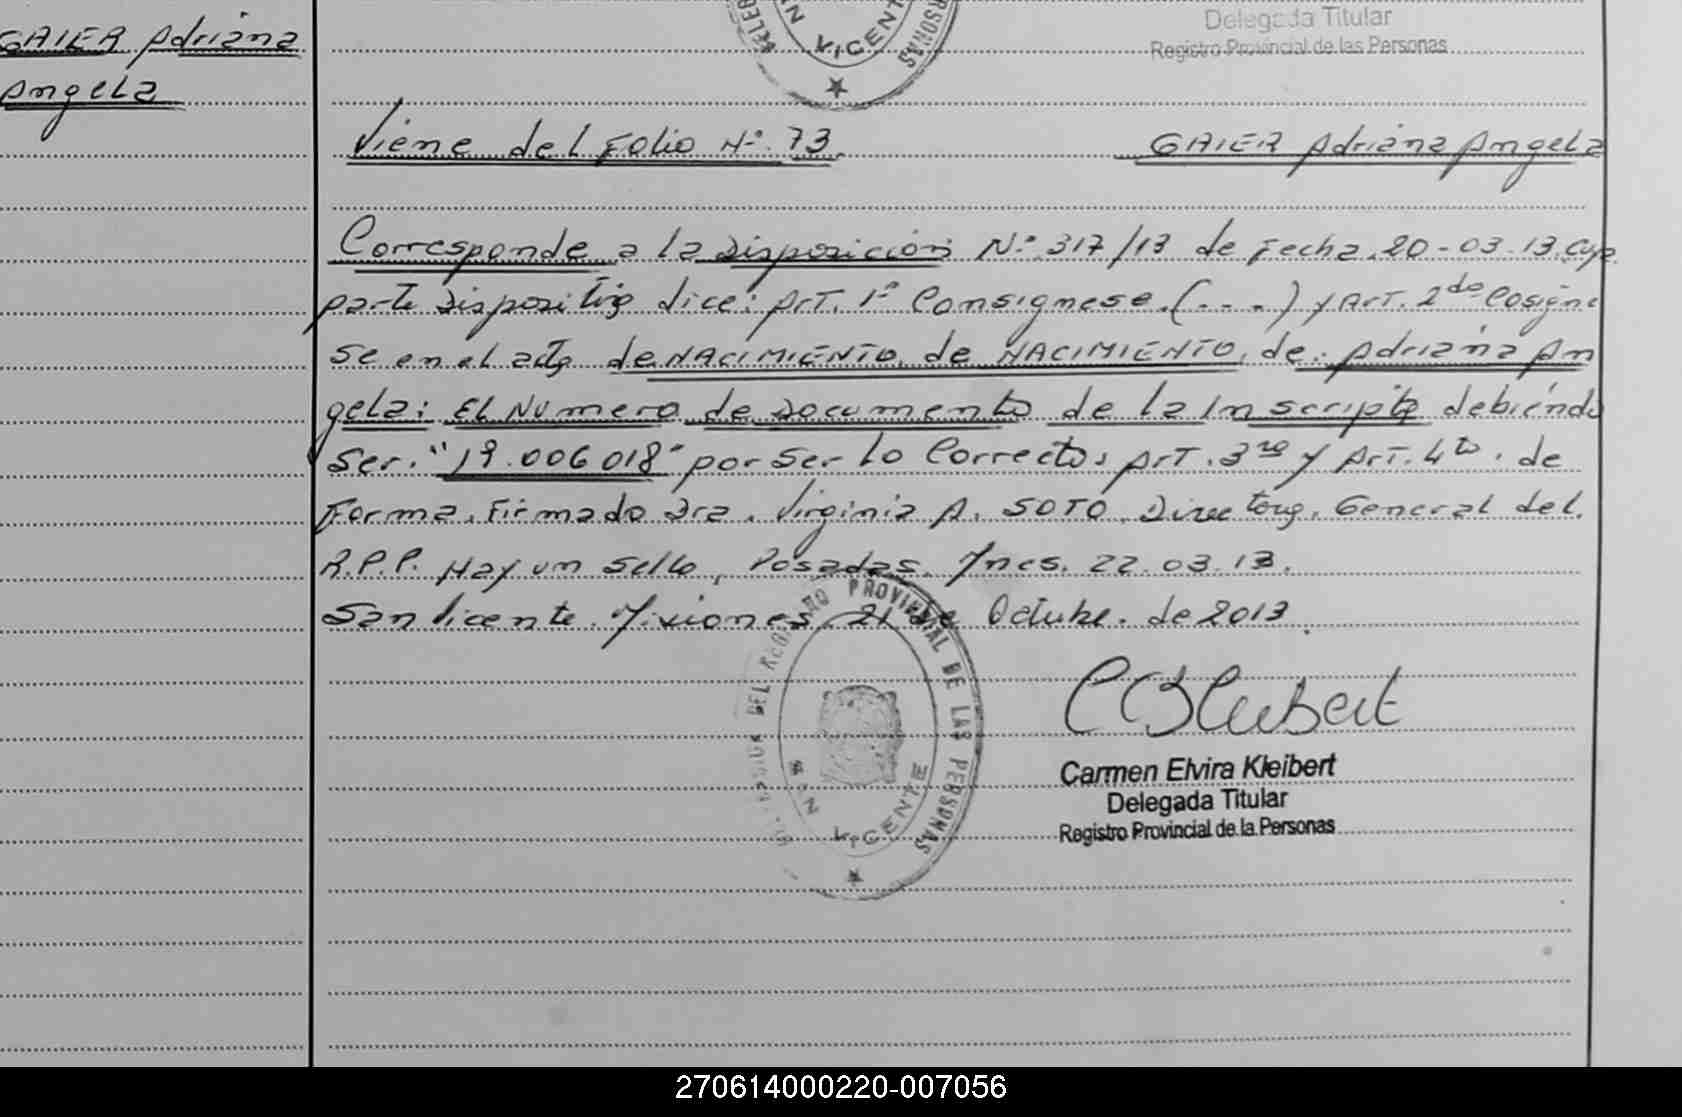 GAIER Adriana
Angela
Delegada Titular
Registro Provincial de las Personas
SAN VICENTE
Viene del Folio Nº. 73
GAIER Adriana Angela
Corresponde a la Disposición Nº. 317/13 de Fecha. 20-03-13. cuya
parte Dispositiva dice: Art. 1º Consignese. (---) y Art. 2do Cosigne
se en el acta de NACIMIENTO, de NACIMIENTO, de: Adriana An
gela: El Numero de Documento de la Inscripta debiendo
Ser. "19.006018" por ser lo Correcto, Art. 3ro y Art. 4to. de
Forma. Firmado Dra. Virginia A. SOTO. Directora. General del.
R.P.P. Hay un Sello, Posadas. Mnes. 22.03.13.
San Vicente. Misiones, 21 de Octubre. de 2013.
DEL REGISTRO PROVINCIAL DE LAS PERSONAS
SAN VICENTE
Carmen Elvira Kleibert
Delegada Titular
Registro Provincial de la Personas
270614000220-007056